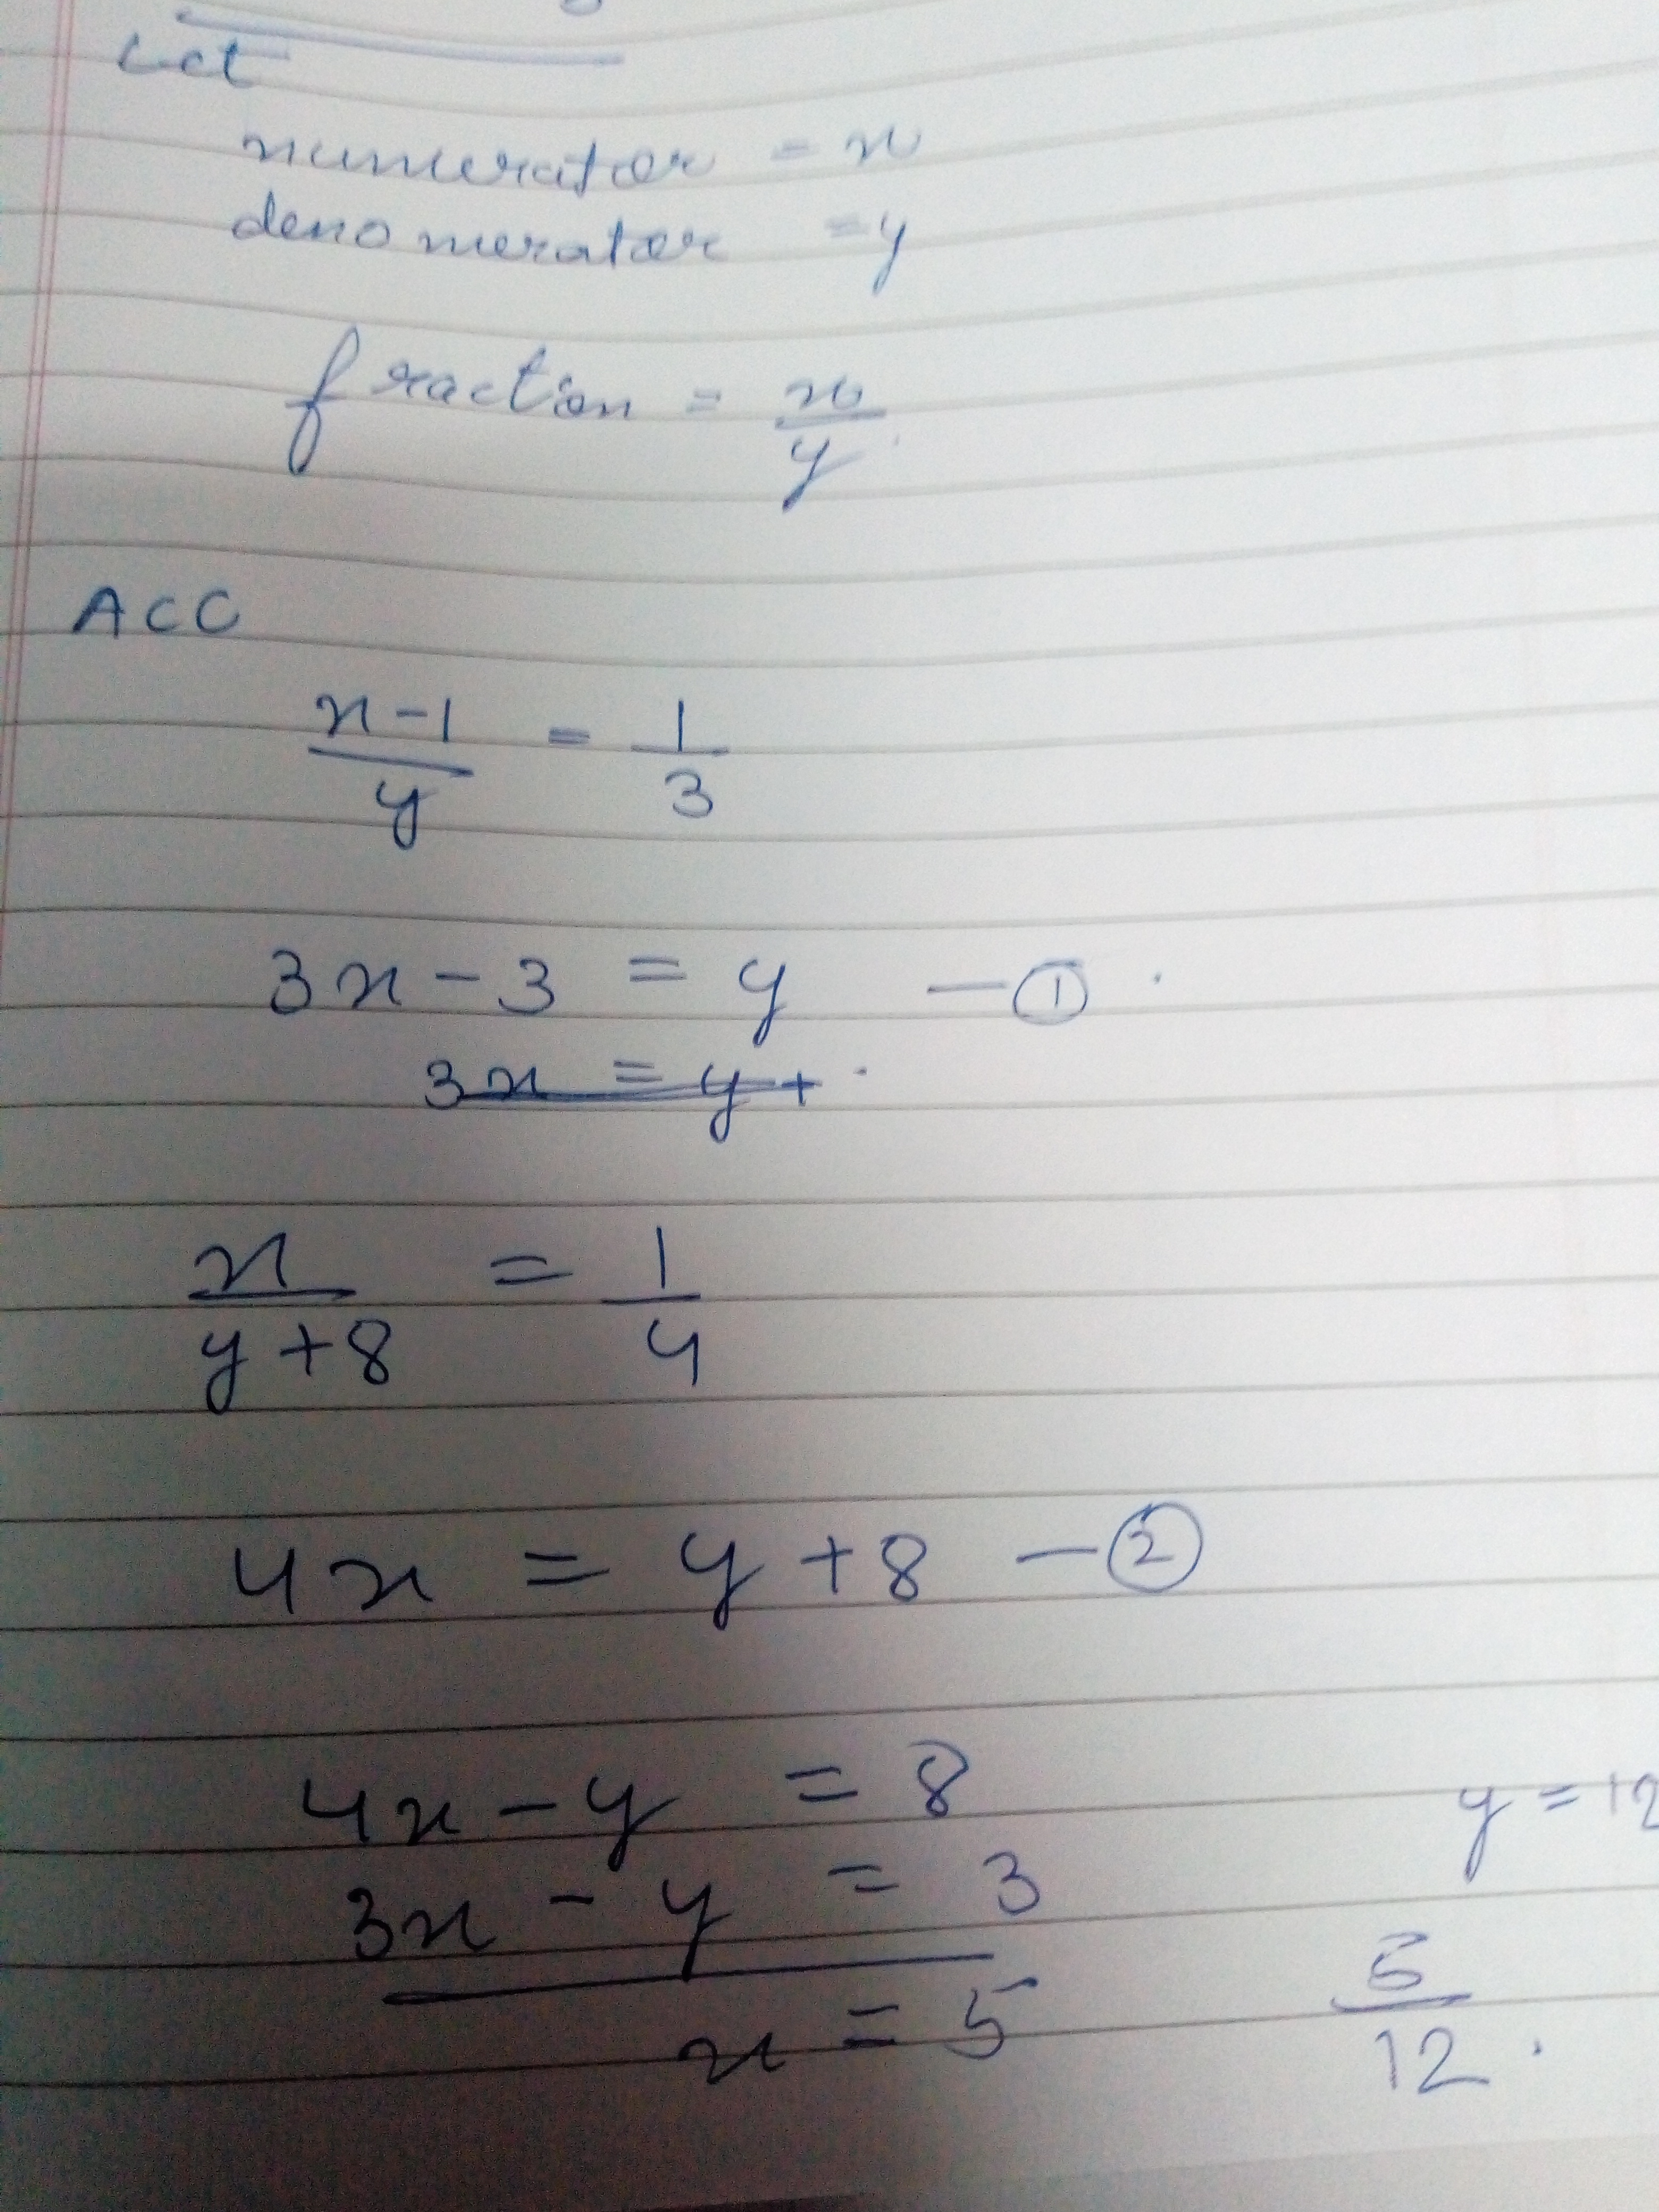 Let
numerator = x
denomerator = y
fraction = x/y
ACC
x-1/y = 1/3
3x - 3 = y - ①
3x = y +
x/y+8 = 1/4
4x = y + 8 - ②
4x - y = 8
y = 12
3x - y = 3
x = 5
5/12.